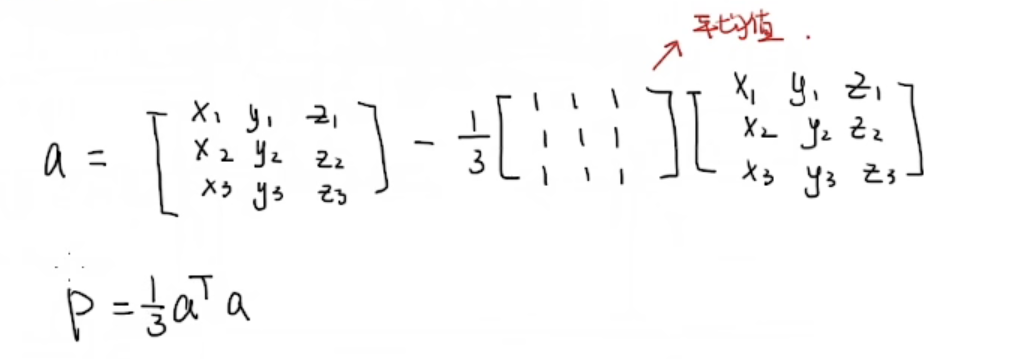 平均值.
a = [x₁ y₁ z₁; x₂ y₂ z₂; x₃ y₃ z₃] - 1/3 [1 1 1; 1 1 1; 1 1 1] [x₁ y₁ z₁; x₂ y₂ z₂; x₃ y₃ z₃]
P = 1/3 aᵀ a